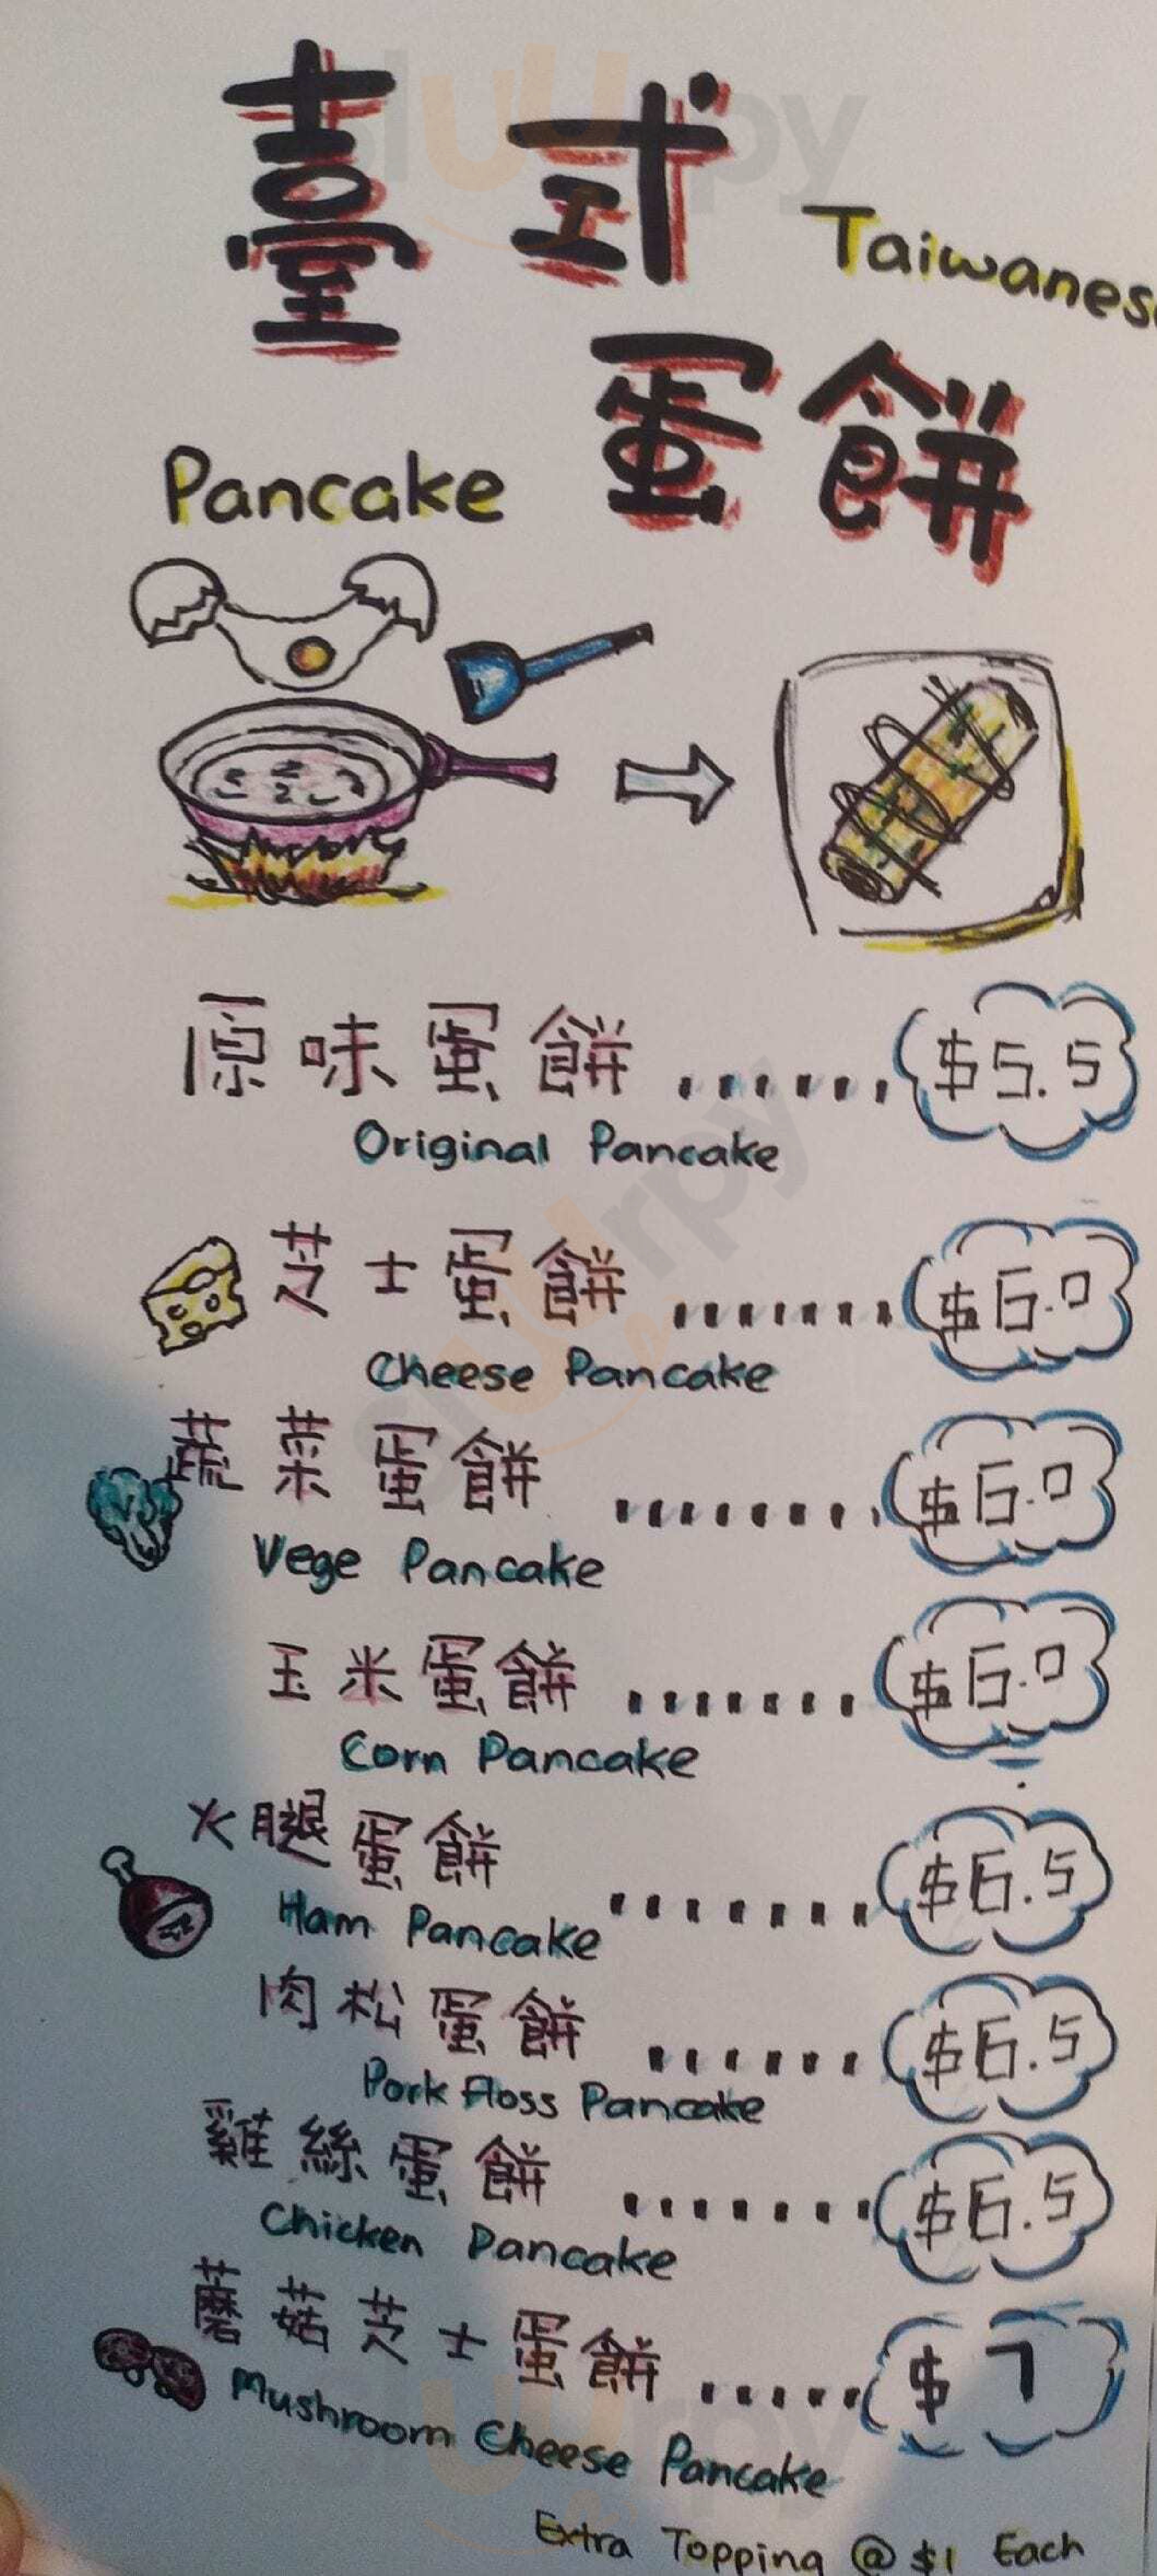 臺式
Taiwanese
蛋餅
Pancake
原味蛋餅 ...... $5.5
Original Pancake
芝士蛋餅 ........ $6.0
Cheese Pancake
蔬菜蛋餅 ........ $6.0
Vege Pancake
玉米蛋餅 ....... $6.0
Corn Pancake
火腿蛋餅 ....... $6.5
Ham Pancake
肉松蛋餅 ...... $6.5
Pork Floss Pancake
雞絲蛋餅 ....... $6.5
Chicken Pancake
蘑菇芝士蛋餅 ..... $7
Mushroom Cheese Pancake
Extra Topping @ $1 Each
sluurpy
sluurpy
sluurpy